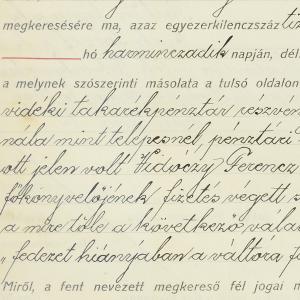 megkeresésére ma, azaz egyezerkilenczszáz
hó harminczadik napján, dél
a melynek szószerinti másolata a tulsó oldalon
vidéki takarékpénztár részvén
nála mint telepesnél, pénztári
ott jelen volt Vidóczy Ferencz
főkönyvelőjének fizetés végett
a mire tőle a következő vála
„fedezet hiányában a váltóra
Miről, a fent nevezett megkereső fél jogai